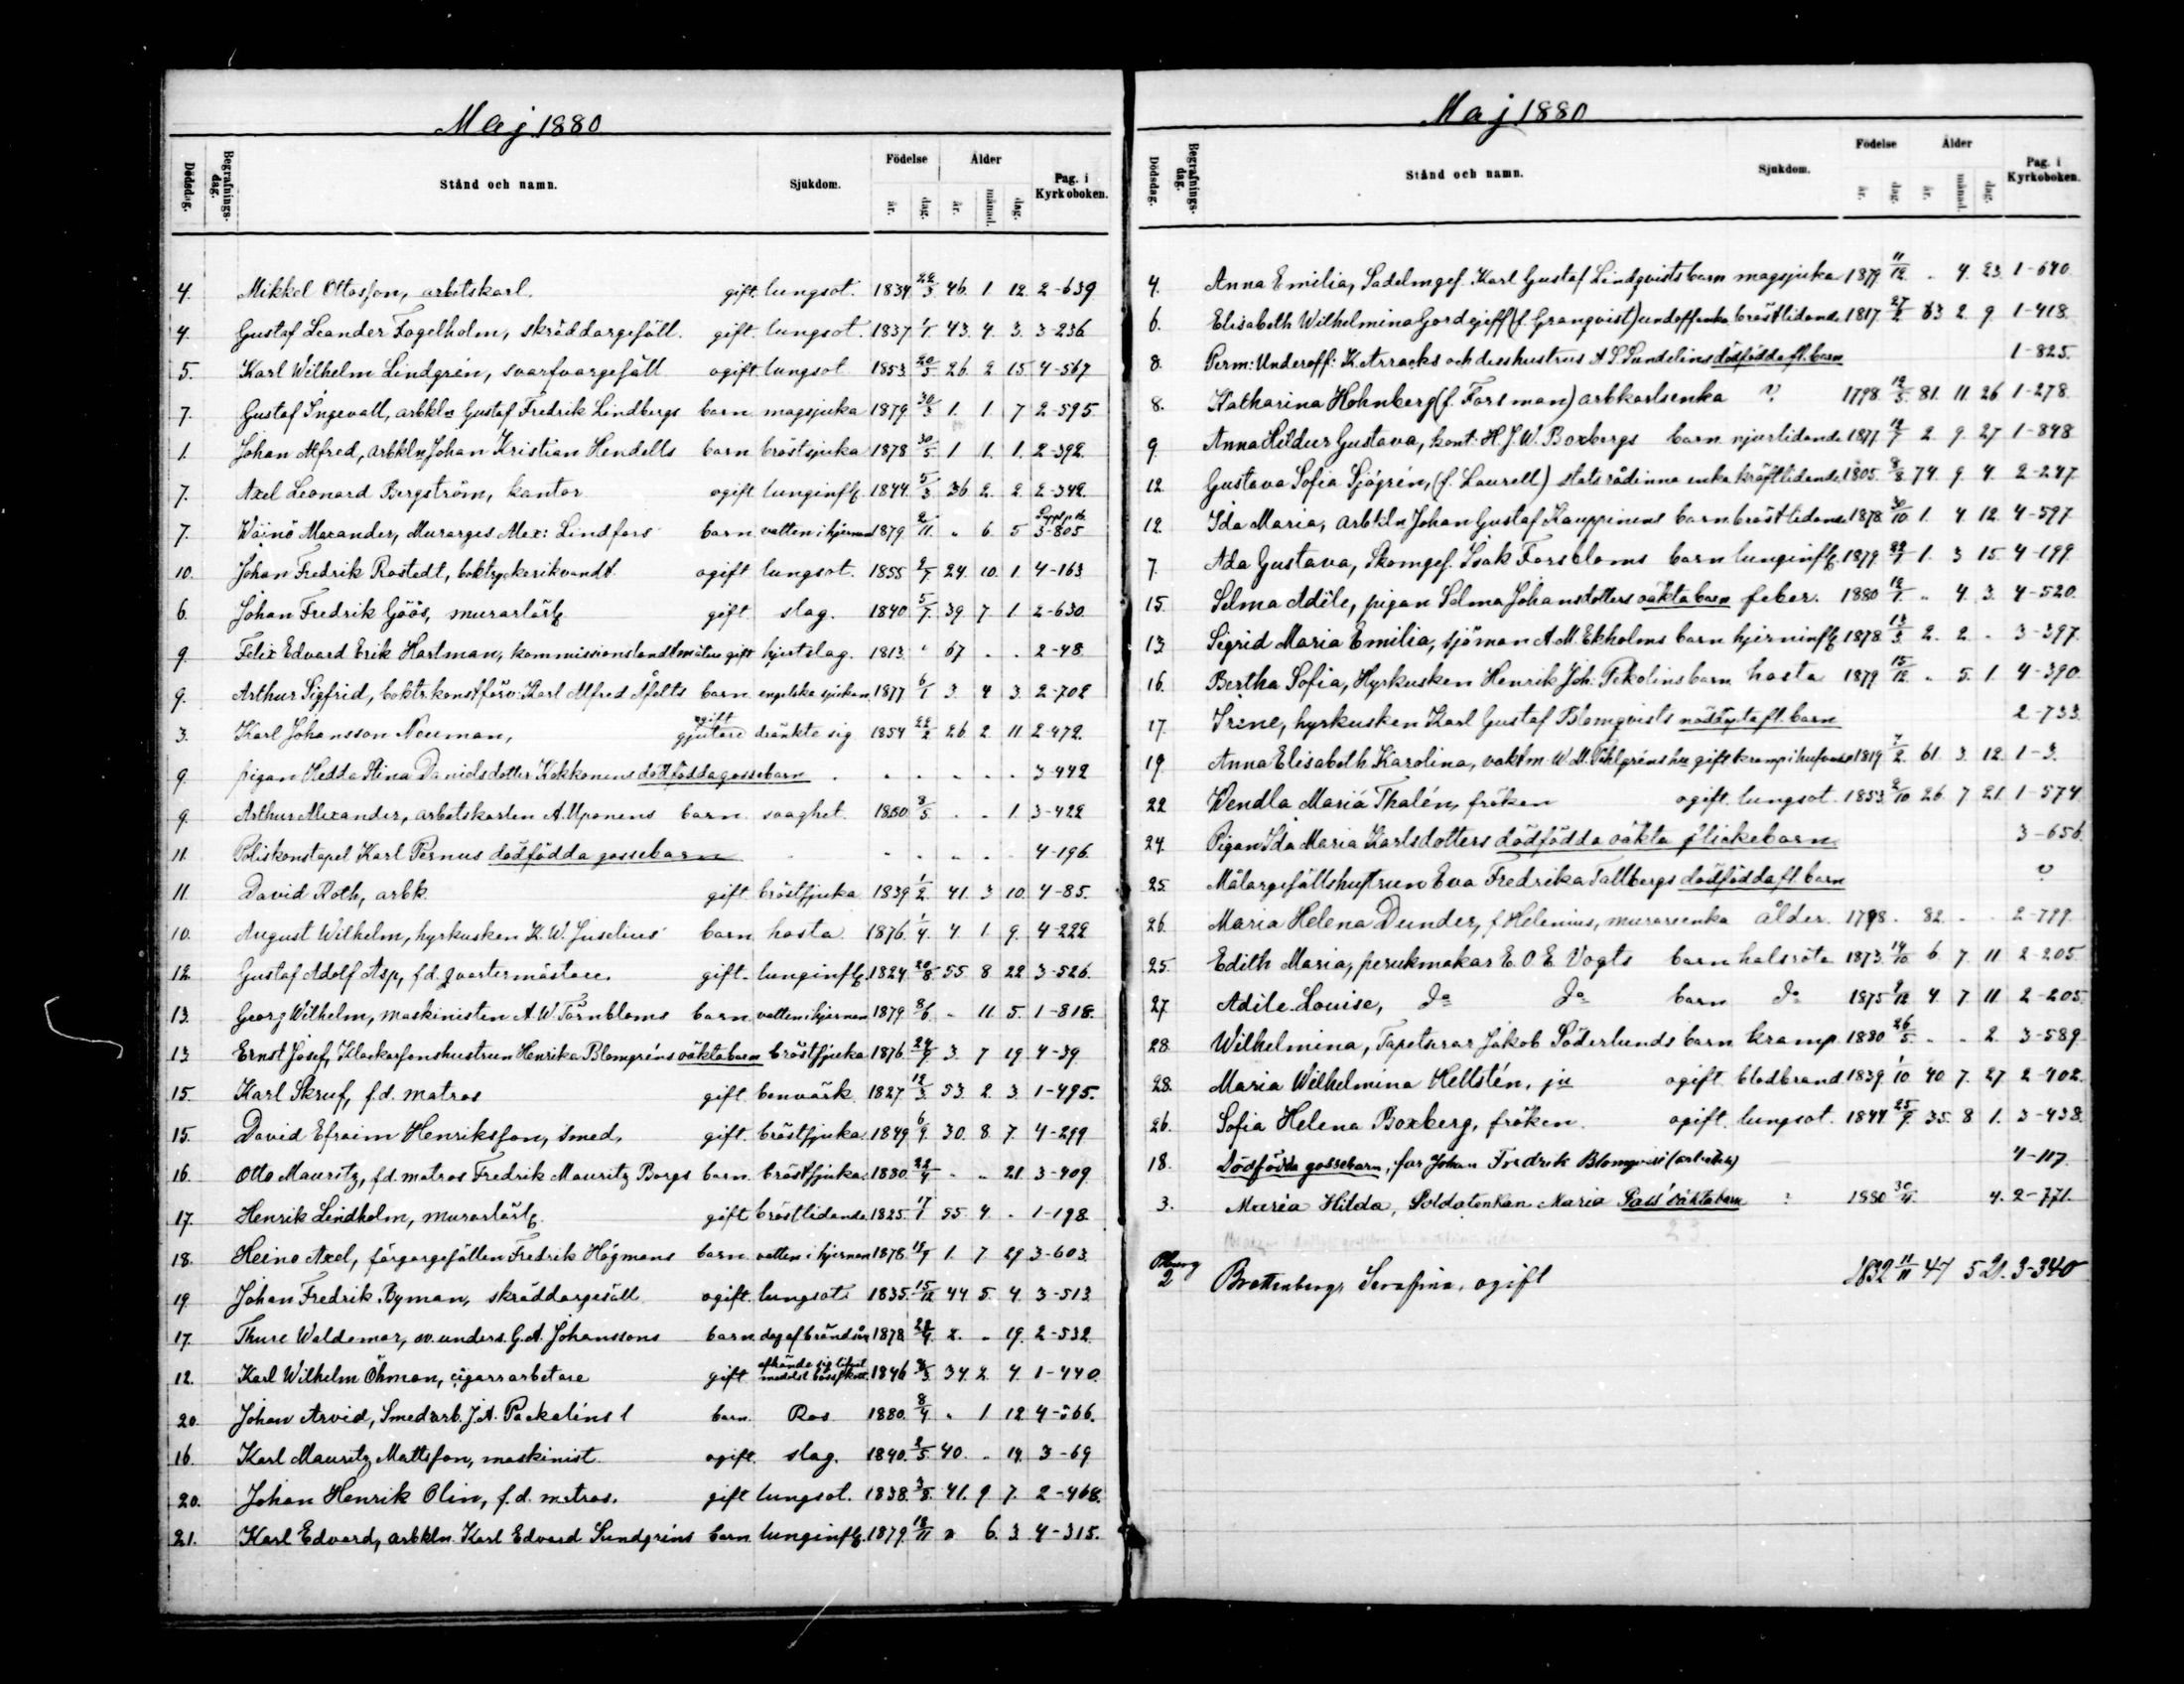 Maj 1880
Dödsdag. Begrafnings-dag. Stånd och namn. Sjukdom. Födelse år. dag. Ålder år. månad. dag. Pag. i Kyrkoboken.
4. Mikkel Ottosson, arbetskarl. gift. lungsot. 1834 22/3 46. 1 12. 2-639
4. Gustaf Leander Fagelholm, skräddargesäll. gift. lungsot. 1837 1/1 43. 4. 3. 3-236
5. Karl Wilhelm Lindgrén, svarfvargesäll ogift lungsot 1853. 20/2 26. 2 15 4-567
7. Gustaf Ingevall, arbkln Gustaf Fredrik Lindbergs barn magsjuka 1879. 30/3 1. 1 7 2-595
1. Johan Alfred, arbkln Johan Kristian Hendells barn bröstsjuka 1878 30/3 1 1. 1. 2-392
7. Axel Leonard Bergström, kantor ogift lunginflg. 1844. 5/3 36 2. 2. 2-342
7. Wäinö Alexander, Murarges Alex: Lindfors barn vatten i hjernan 1879 2/11 " 6 5 3-805
10. Johan Fredrik Rostedt, boktryckerikvandt. ogift lungsot. 1855 9/7 24. 10. 1. 4-163
6. Johan Fredrik Göös, murarlärlg gift slag. 1840. 5/7 39 7 1 2-630
9. Felix Edvard Erik Hartman, kommissionslandtmätare gift hjertslag. 1813. " 67 . . 2-48
9. Arthur Sigfrid, boktr. konstförv: Karl Alfred Åfelts barn engelska sjukan 1877 6/1 3. 4 3. 2-702
3. Karl Johansson Neuman, ogift gjutare dränkte sig 1854 22/2 26 2. 11 2-472.
9. pigan Hedda Stina Danielsdotter Kokkonens dödfödda gossebarn . . . . . . 3-442
9. Arthur Alexander, arbetskarlen A. Uponens barn svaghet. 1880 8/5 . . 1. 3-422
11. Poliskonstapel Karl Pernus dödfödda gossebarn . . . . . 4-196.
11. David Roth, arbk. gift bröstsjuka 1839. 1/2 41. 3 10. 4-85.
10. August Wilhelm, hyrkusken K. W. Juselius' barn hosta 1876. 1/4 4. 1 9. 4-222
12. Gustaf Adolf Asp, f.d. qvartermästare. gift. lunginflg. 1824. 20/8 55 8 22 3-526.
13. Georg Wilhelm, maskinisten A. W. Törnbloms barn vatten i hjernan 1879 8/6 - 11 5. 1-818.
13 Ernst Josef, Klockarsonshustrun Henrika Blomgréns oäkta barn bröstsjuka 1876. 24/9 3. 7 19 4-39
15. Karl Skruf, f.d. matros gift. benvärk 1827 12/3 53. 2. 3. 1-495.
15. David Efraim Henriksson, smed, gift. bröstsjuka. 1849. 6/9 30. 8. 7. 4-299
16. Otto Mauritz, f.d. matros Fredrik Mauritz Borgs barn. bröstsjuka. 1880. 22/4 . .. 21 3-409
17. Henrik Lindholm, murarlärlg. gift bröstlidande 1825. 17/1 55 4 . 1-198
18. Heino Axel, färgargesällen Fredrik Högmans barn. vatten i hjernan 1878. 18/9 1. 7 29 3-603
19. Johan Fredrik Byman, skräddargesäll ogift. lungsot. 1835. 15/12 44 5. 4. 3-513.
17. Thure Waldemar, ov. unders. G. A. Johanssons barn. dog af brändsår 1878. 28/4 2. . 19. 2-532
12. Karl Wilhelm Öhman, cigarrarbetare gift afhände sig lifvet medelst bösskott. 1846 8/3 34. 2. 4. 1-440.
20. Johan Arvid, Smedarb. J. A. Packaléns l barn. Ros 1880. 8/4 " 1 12 4-566.
16. Karl Mauritz Mattsson, maskinist. ogift. slag. 1840. 2/5 40. . 14 3-69
20. Johan Henrik Olin, f.d. matros. gift lungsot. 1838. 3/8 41. 9 7. 2-468.
21. Karl Edvard, arbkln. Karl Edvard Sundgréns barn lunginflg. 1879. 18/11 " 6. 3 4-315.
Maj 1880
Dödsdag. Begrafnings-dag. Stånd och namn. Sjukdom. Födelse år. dag. Ålder år. månad. dag. Pag. i Kyrkoboken.
4. Anna Emilia, Sadelmges. Karl Gustaf Lindqvists barn magsjuka 1879. 11/12 . 4. 23. 1-640
6. Elisabeth Wilhelmina Gordejeff (f. Granqvist) undoffenka bröstlidande 1817. 27/2 63 2. 9. 1-418.
8. Perm: Underoff: K. Arrocks och dess hustrus A S Sundelins dödfödda fl. barn 1-825.
8. Katharina Hohnberg (f. Forsman) arbkarlsenka ? 1798. 12/5 81. 11 26 1-278
9 Anna Hildur Gustava, kont: H. J. W. Boxbergs barn njurlidande 1877. 12/7 2. 9. 27 1-848
12. Gustava Sofia Sjögrén, (f. Laurell) statsrådinna enka kräftlidande 1805. 8/8 74. 9. 4. 2-247.
12. Ida Maria, arbkln Johan Gustaf Kauppinens barn bröstlidande 1878. 30/10 1. 4. 12. 4-597
7. Ada Gustava, Skomges. Isak Forsbloms barn lunginflg. 1879. 22/1 1. 3 15. 4-199.
15. Selma Adéle, pigan Selma Johansdotters oäkta barn feber. 1880 12/1 " 4. 3. 4-520.
13. Sigrid Maria Emilia, sjöman A. M. Ekholms barn hjerninflg. 1878. 13/3 2. 2. . 3-397.
16. Bertha Sofia, Hyrkusken Henrik Joh. Pekolins barn hosta 1879 15/12 . 5. 1. 4-390.
17. Irene, hyrkusken Karl Gustaf Blomqvists nöddöpta fl. barn 2-733.
19. Anna Elisabeth Karolina, vaktm. W. M. Pehlgréns hu gift kramp i hufvud 1819. 7/2 61. 3. 12. 1-3.
22 Wendla Maria Thalén, fröken ogift. lungsot. 1853. 2/10 26. 7. 21. 1-574.
24. Pigan Ida Maria Karlsdotters dödfödda oäkta flickebarn 3-656.
25. Målargesällshustrun Eva Fredrika Tallbergs dödfödda fl. barn ?
26. Maria Helena Dunder, f. Helenius, murareenka ålder. 1798. . 82. . . 2-799.
25. Edith Maria, perukmakar E. O. E. Vogts barn halsröta 1873. 14/10 6. 7. 11 2-205.
27. Adile Louise, Do Do barn Do 1875 9/12 4. 7 11 2-205.
28. Wilhelmina, Tapetserar Jakob Söderlunds barn kramp 1880 26/5 . . 2. 3-589.
28. Maria Wilhelmina Hellstén, ju ogift. blodbrand. 1839. 1/10 40 7. 27 2-402.
26. Sofia Helena Boxberg, fröken. ogift. lungsot. 1844. 25/9 35. 8 1. 3-438.
18. Dödfödda gossebarn, far Johan Fredrik Blomqvist 4-117.
3. Maria Hilda, Soldatenkan Maria oäkta barn ? 1880 30/4 4. 2-771.
23
2 Brottenberg, Serafina, ogift 1832 11/11 47 5 21. 3-340